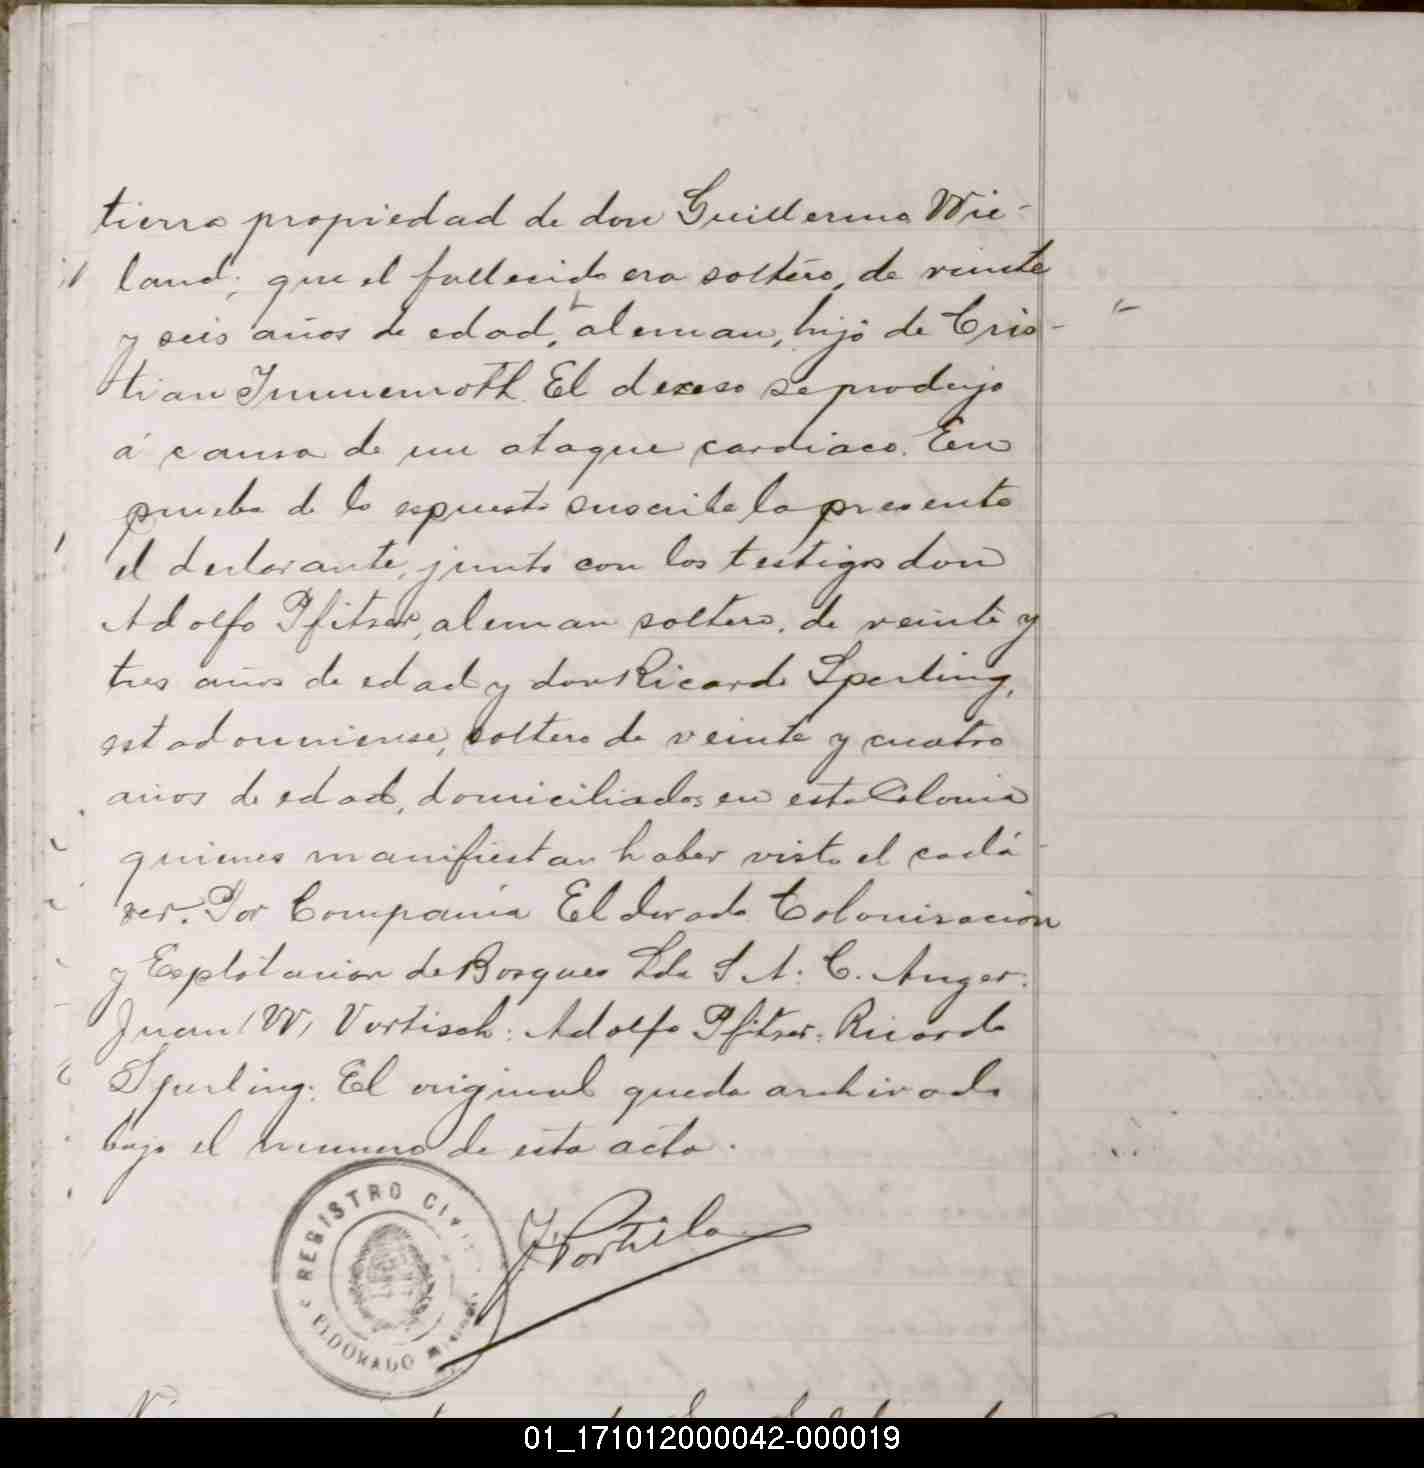 tierra propiedad de don Guillermo Wie-
land; que el fallecido era soltero, de veinte
y seis años de edad, aleman, hijo de Cris-
tian Immemoth. El deceso se produjo
á causa de un ataque cardiaco. En
prueba de lo espuesto suscribe la presente
el declarante, junto con los testigos don
Adolfo Pfitzer, aleman soltero, de veinte y
tres años de edad y don Ricardo Sperling,
estadouniense, soltero de veinte y cuatro
años de edad, domiciliados en esta Colonia
quienes manifiestan haber visto el cadá-
ver. Por Compañia Eldorado Colonisacion
y Esplotacion de Bosques Lda S A: C. Anger:
Juan (W) Vortisch: Adolfo Pfitzer: Ricardo
Sperling: El original queda archivado
bajo el numero de esta acta.
REGISTRO CIVIL
J. Portillo
ELDORADO
01_171012000042-000019